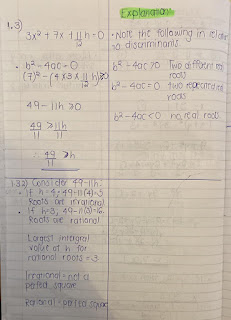 Explanation
1.3)
3x² + 7x + 11/12 h = 0
• b² - 4ac = 0
• (7)² - (4 × 3 × 11/12 h) ≥ 0
49 - 11h ≥ 0
49/11 ≥ 11h/11
∴ 49/11 ≥ h
• Note the following in
to discriminants
b² - 4ac > 0 Two different real
roots
b² - 4ac = 0 two repeated real
roots
b² - 4ac < 0 no real roots
1.3.2) Consider 49 - 11h.
• If h = 4; 49 - 11(4) = 5
Roots are irrational
• If h = 3; 49 - 11(3) = 16.
Roots are rational
Largest integral
value of h for
rational roots = 3
Irrational = not a
perfect square
Rational = perfect square